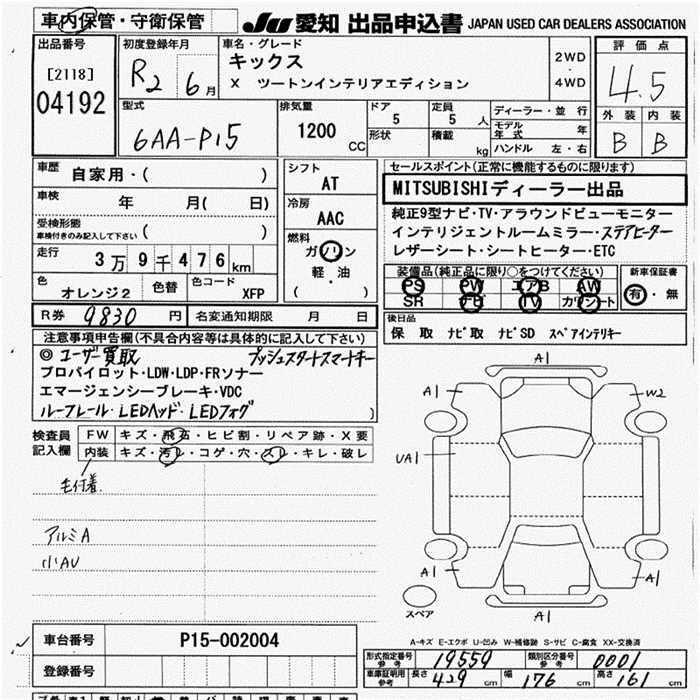 車内保管・守衛保管
JU 愛知 出品申込書 JAPAN USED CAR DEALERS ASSOCIATION
出品番号
[2118]
04192
初度登録年月
R2 6月
車名・グレード
キックス
X ツートンインテリアエディション
2WD
・
4WD
評価点
4.5
外装 内装
B B
型式
6AA-P15
排気量
1200
CC
ドア
5
定員
5人
形状
積載
kg
ディーラー・並行
モデル年式 年
ハンドル 左・右
車歴
自家用・( )
車検
年 月( 日)
受検形態
車検付きのみ記入して下さい ( )
走行
3万9千476km
色
オレンジ2
色替
色コード
XFP
シフト
AT
冷房
AAC
燃料
ガソリン
軽・油
( )
セールスポイント(正常に機能するものに限ります)
MITSUBISHIディーラー出品
純正9型ナビ・TV・アラウンドビューモニター
インテリジェントルームミラー・ステアヒーター
レザーシート・シートヒーター・ETC
装備品(純正品に限り○をつけてください)
PS PW エアB AW
SR ナビ TV カワシート
新車保証書
有・無
R券
9830円
名変通知期限 月 日
後日品
保 取 ナビ取 ナビSD スペアインテリキー
注意事項申告欄(不具合内容等は具体的に記入して下さい)
◎ ユーザー買取 プッシュスタートスマートキー
プロパイロット・LDW・LDP・FRソナー
エマージェンシーブレーキ・VDC
ルーフレール・LEDヘッド・LEDフォグ
)
検査員記入欄
FW キズ・飛石・ヒビ割・リペア跡・X要
内装 キズ・汚レ・コゲ・穴・スレ・キレ・破レ
毛付着
アルミA
小AU
A1
A1
W2
UA1
A1
A1
A1
スペア
A-キズ E-エクボ U-凹み W-補修跡 S-サビ C-腐食 XX-交換済
車台番号
P15-002004
登録番号
形式指定番号 参考
19559
類別区分番号 参考
0001
車庫証明用 参考
長さ 429 cm 幅 176 cm 高さ 161 cm